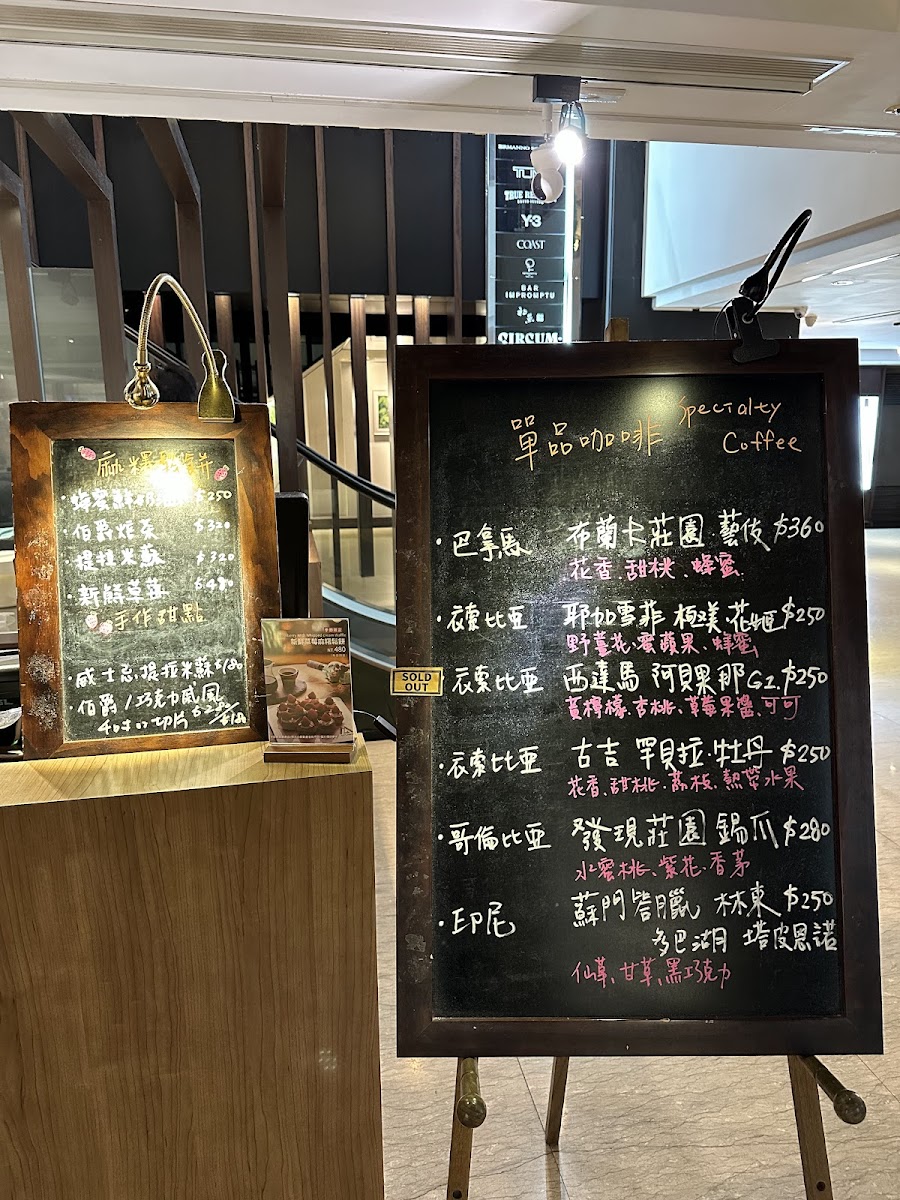 TUMI
Y-3
COAST
BAR
IMPROMPTU
麻糬鬆餅
·蜂蜜鮮奶油 $250
·伯爵炸茶 $320
·提拉米蘇 $320
·新鮮草莓 $480
手作甜點
·威士忌提拉米蘇 $180
·伯爵/巧克力戚風
新鮮草莓麻糬鬆餅
480
單品咖啡 Specialty
Coffee
·巴拿馬 布蘭卡莊園 藝伎 $360
花香、甜桃、蜂蜜
·衣索比亞 耶加雪菲 極漾·花姬 $250
野薑花、蜜蘋果、蜂蜜
SOLD
OUT
衣索比亞 西達馬 阿貝果那 G1. $250
黃檸檬、杏桃、草莓果醬、可可
·衣索比亞 古吉 罕貝拉·牡丹 $250
花香、甜桃、荔枝、熱帶水果
·哥倫比亞 發現莊園 鍚爪 $280
水蜜桃、紫花、香茅
·印尼 蘇門答臘 林東 $250
多巴湖 塔皮恩諾
仙草、甘草、黑巧克力